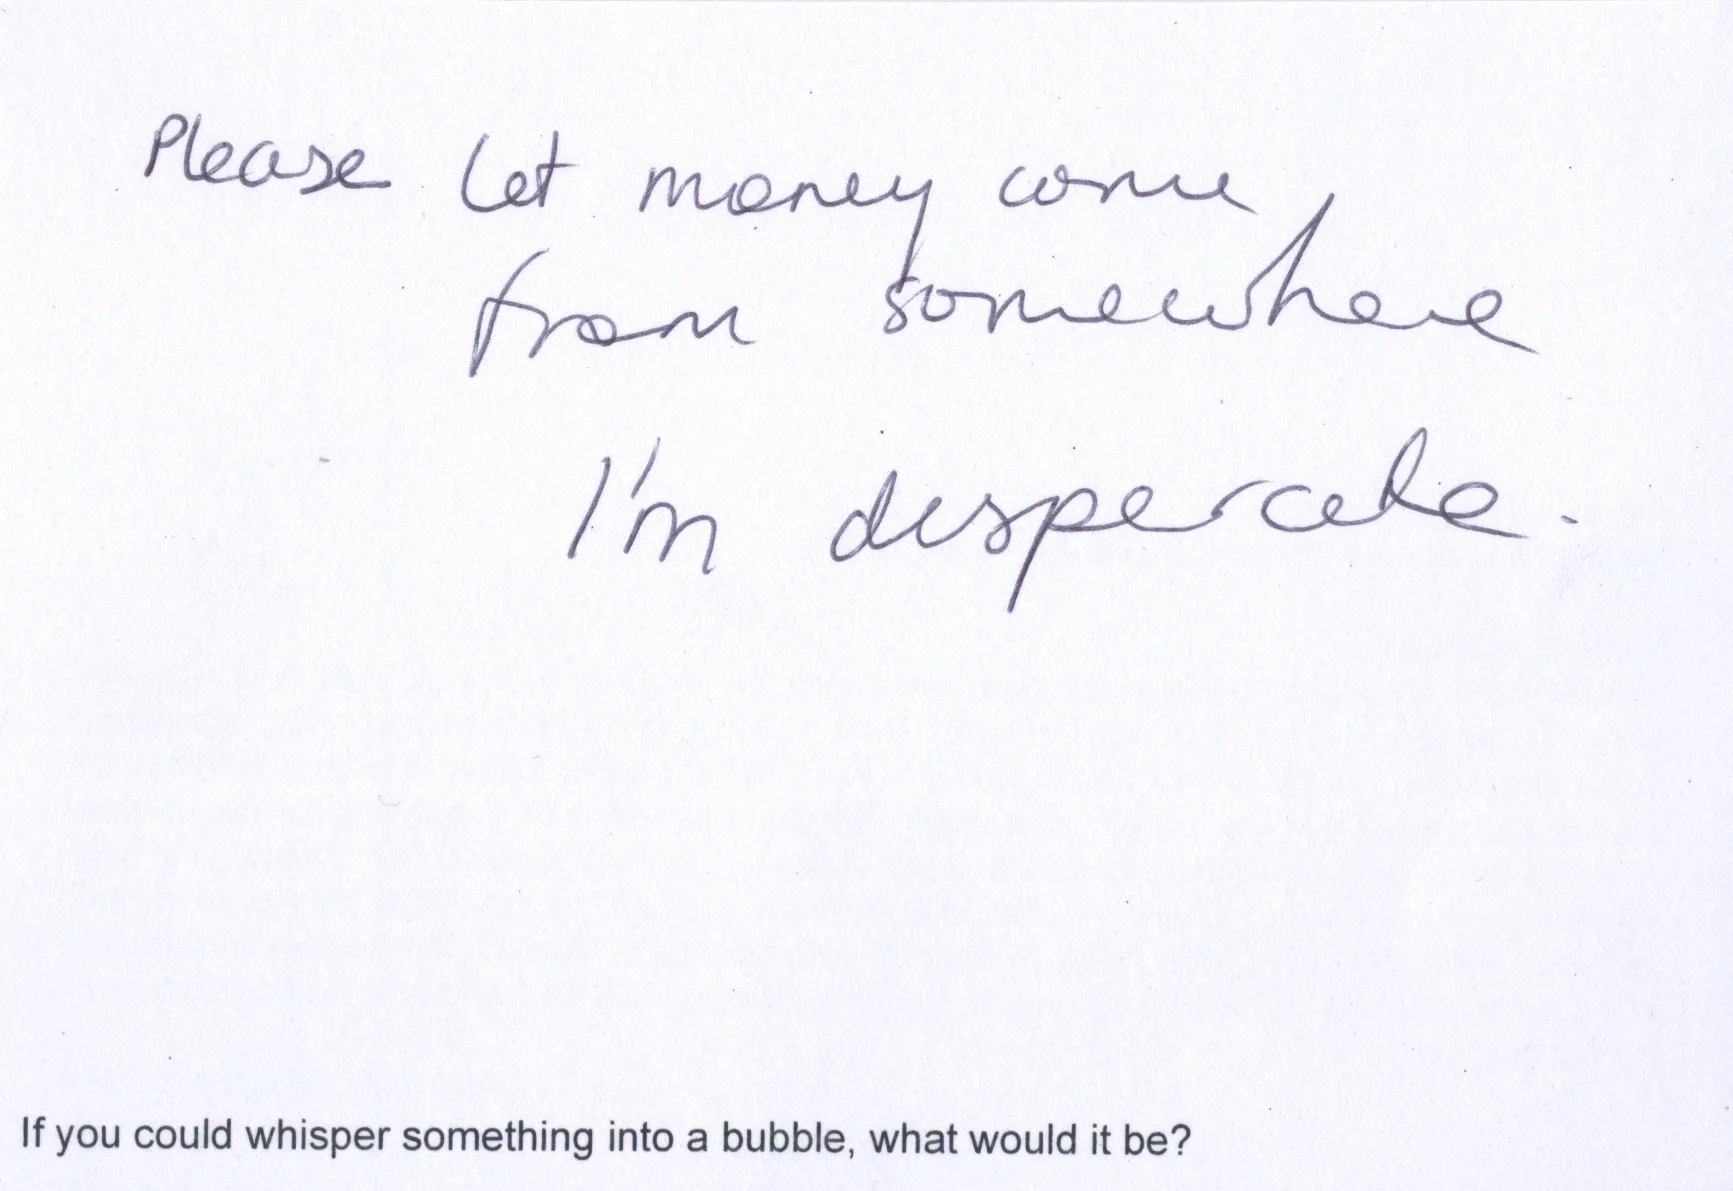 Please let money come
from somewhere
I'm desperate.
If you could whisper something into a bubble, what would it be?